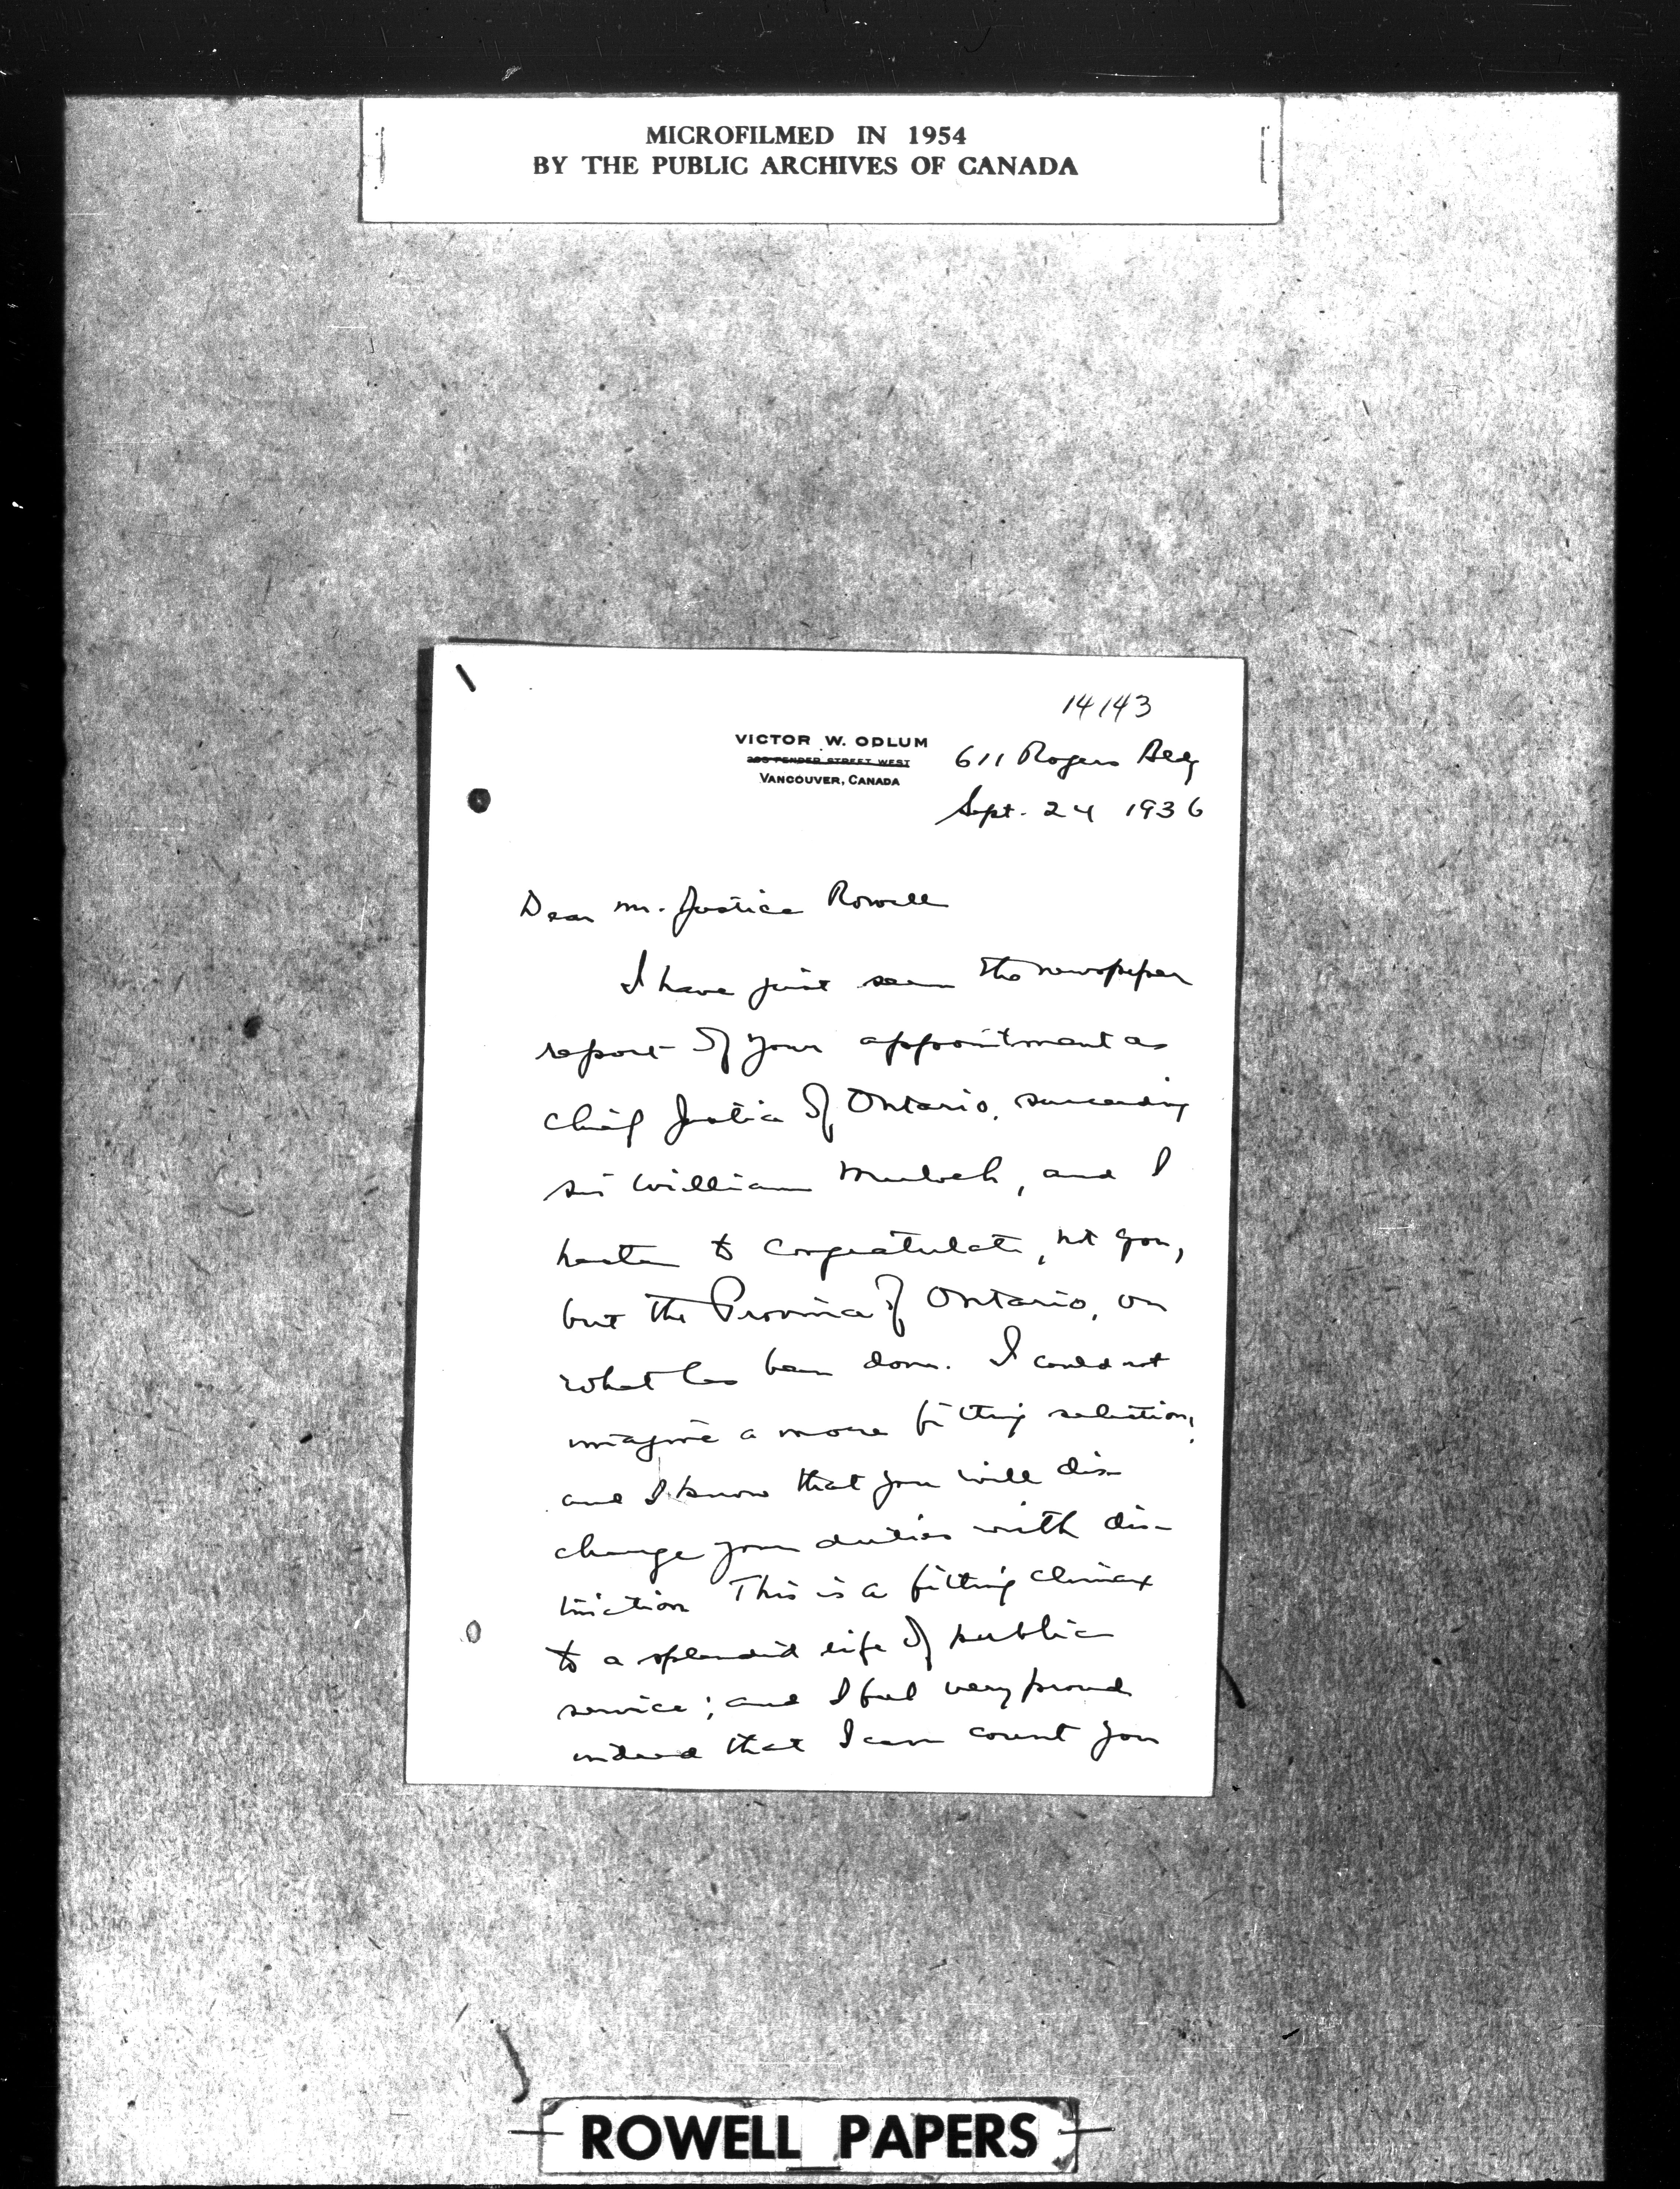 MICROFILMED IN 1954
BY THE PUBLIC ARCHIVES OF CANADA
14143
VICTOR W. ODLUM
PENDER STREET WEST
VANCOUVER, CANADA
611 Rogers Bldg
Sept. 24 1936
Dear Mr. Justice Rowell
I have just seen the newspaper
report of your appointment as
Chief Justice of Ontario, succeeding
Sir William Mulock, and I
hasten to congratulate, not you,
but the Province of Ontario, on
what has been done. I could not
imagine a more fitting selection,
and I know that you will dis-
charge your duties with dis-
tinction This is a fitting climax
to a splendid life of public
service; and I feel very proud
indeed that I can count you
ROWELL PAPERS